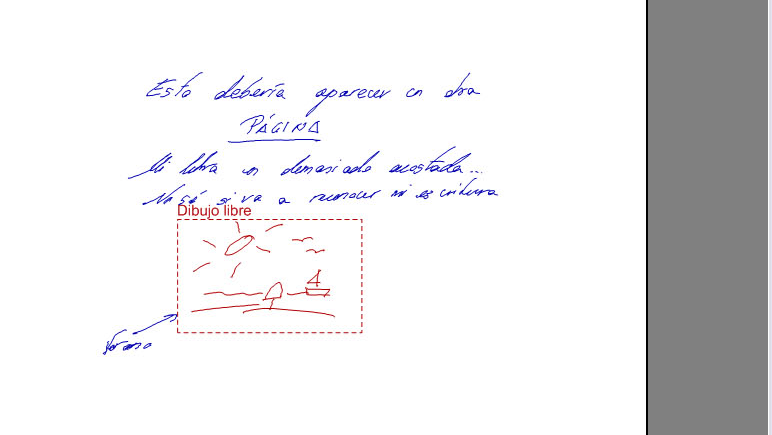 Esto debería aparecer en otra
PÁGINA
Mi letra es demasiado acostada...
No sé si va a reconocer mi escritura
Dibujo libre
Verano